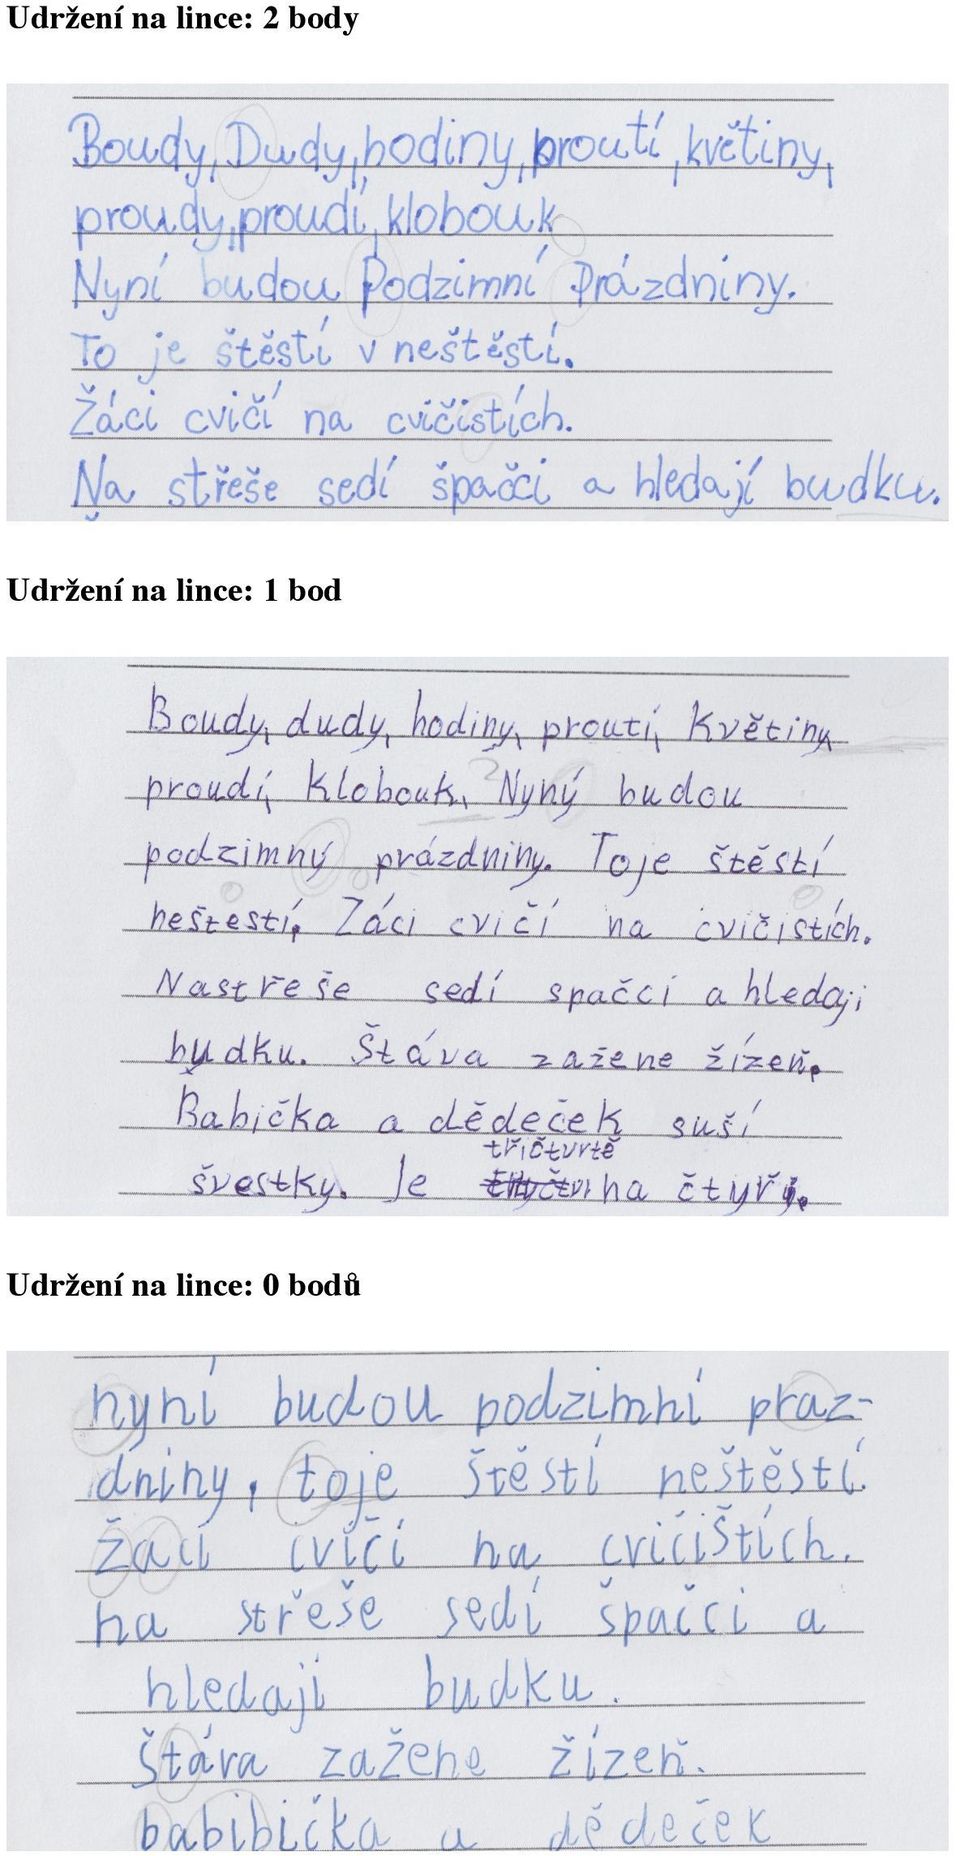 Udržení na lince: 2 body
Boudy, Dudy, hodiny, proutí, květiny,
proudy, proudí, klobouk
Nyní budou Podzimní Prázdniny.
To je štěstí v neštěstí.
Žáci cvičí na cvičistích.
Na střeše sedí špačci a hledají budku.
Udržení na lince: 1 bod
Boudy, dudy, hodiny, proutí, Květiny
proudí, Klobouk, Nyný budou
podzimný prázdniny. Toje štěstí
neštestí, Záci cvičí na cvičistích.
Nastřeše sedí spačci a hledaji
budku. Štáva zažene žízeň.
Babička a dědeček suší
třičtvrtě
švestky. Je na čtyři.
Udržení na lince: 0 bodů
nyní budou podzimní praz-
dniny, toje štěstí neštěstí.
žací cvičí na cvičištích.
na střeše sedí špačci a
hledaji budku.
štáva zažene žízeň.
babibička a dědeček